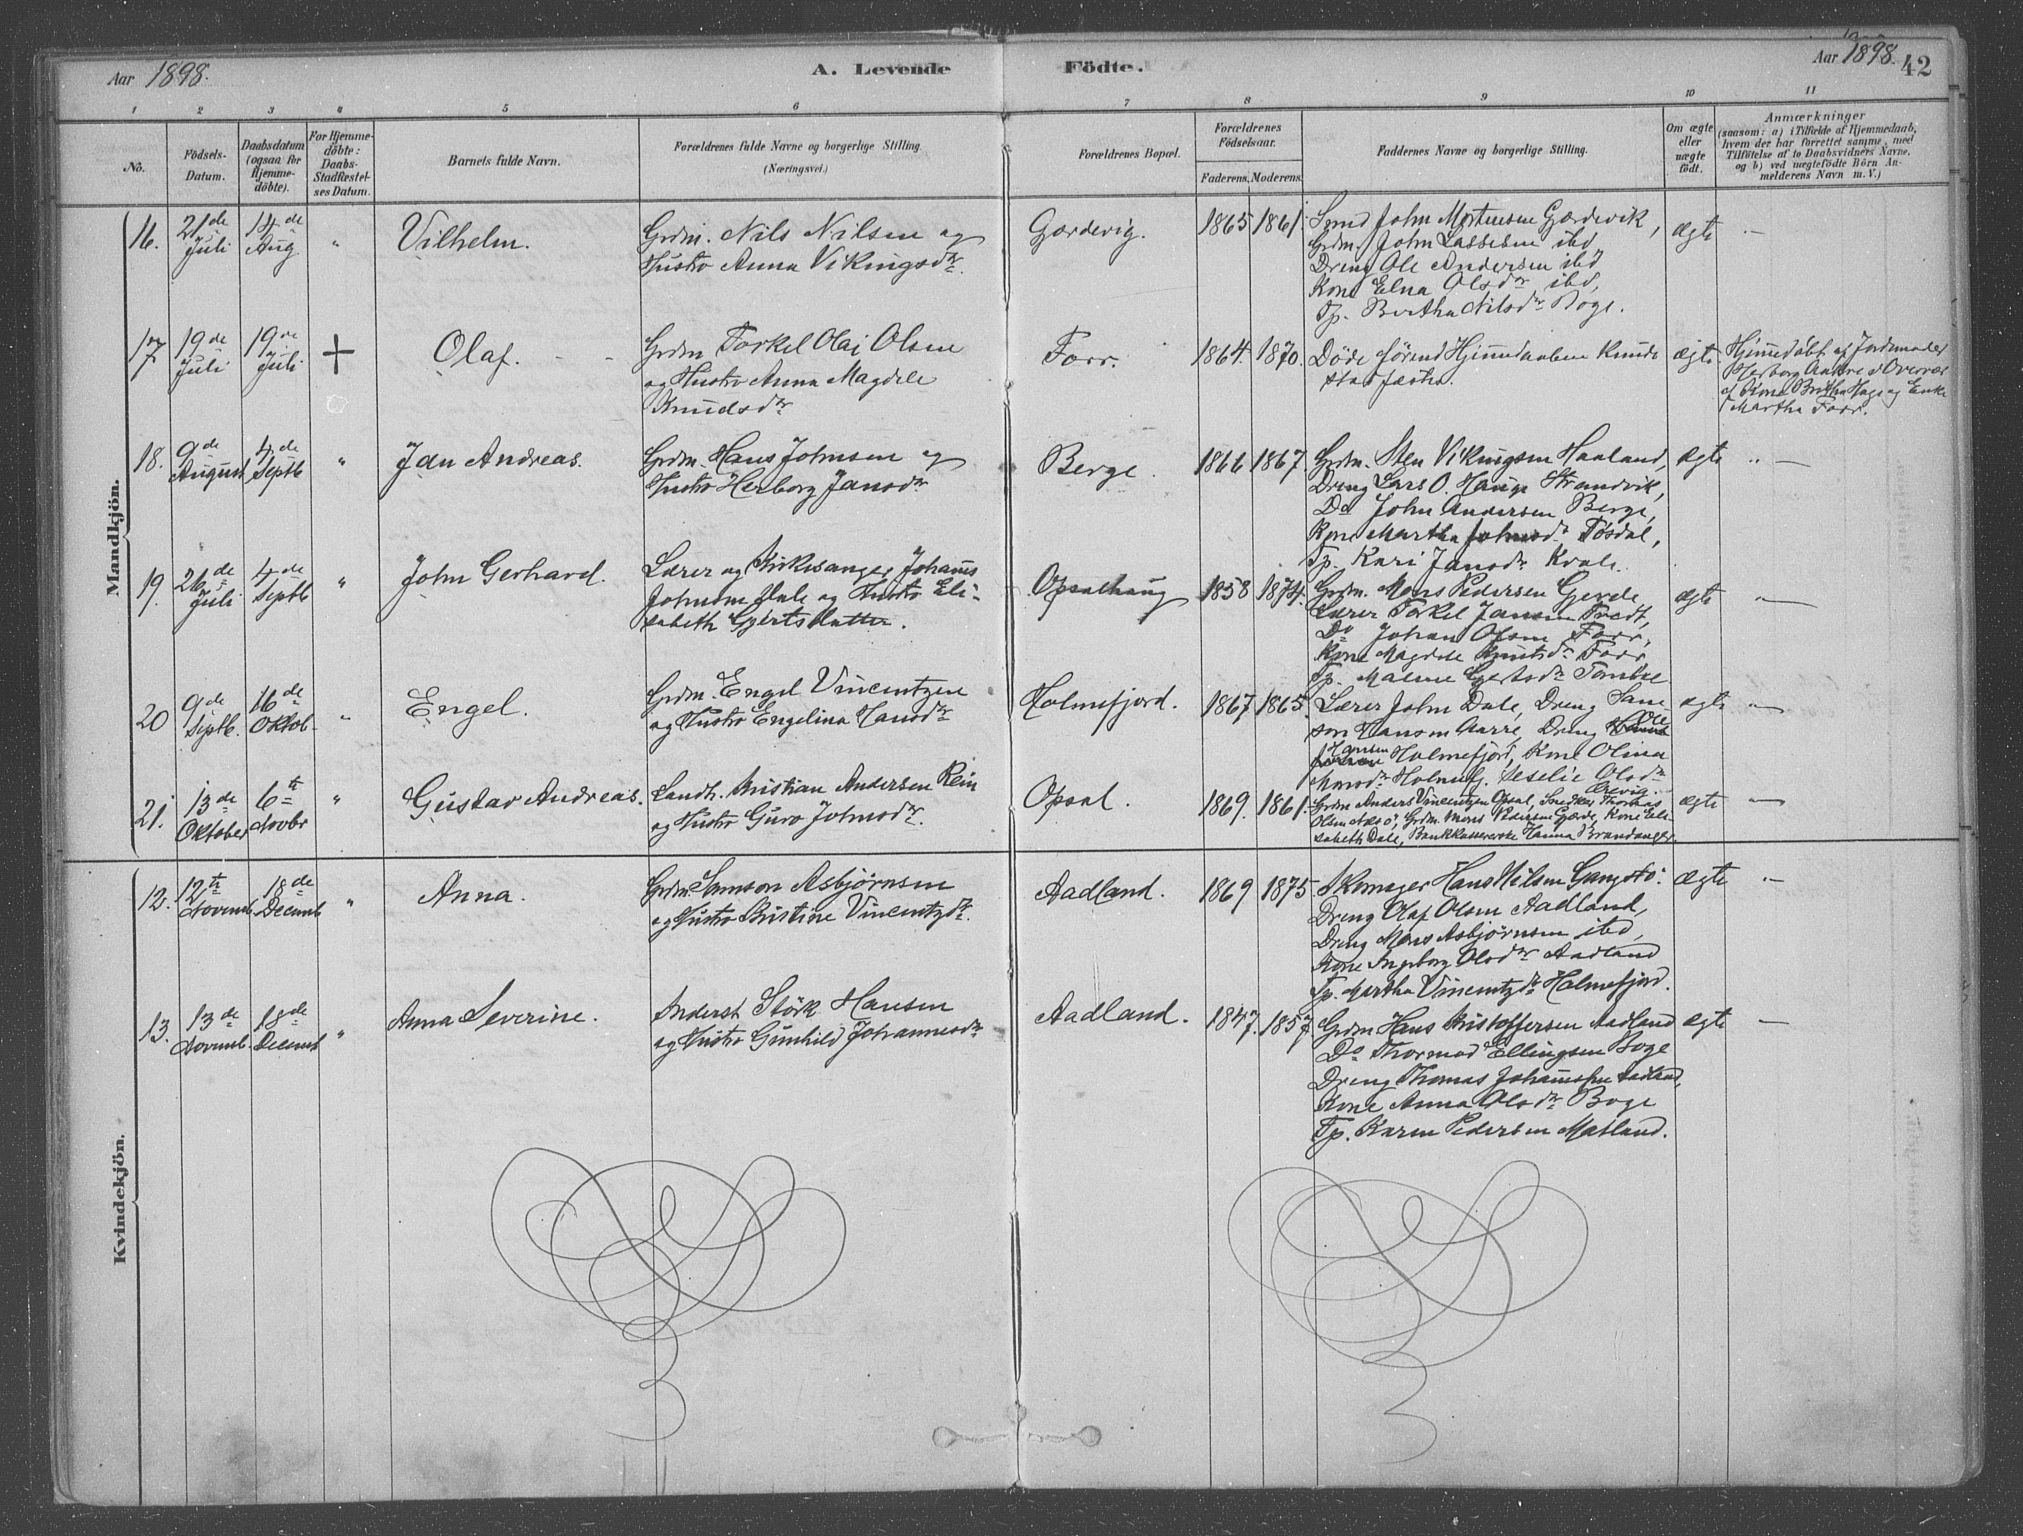 Aar 1898.
A. Levende Födte.
Aar 1898.
42
1 2 3 4 5 6 7 8 9 10 11
No.
Födsels-
Datum.
Daabsdatum
(ogsaa for
Hjemme-
döbte).
For Hjemme-
döbte:
Daabs-
Stadfæstel-
ses Datum.
Barnets fulde Navn.
Forældrenes fulde Navne og borgerlige Stilling.
(Næringsvei.)
Forældrenes Bopæl.
Forældrenes
Födselsaar.
Faderens. Moderens.
Faddernes Navne og borgerlige Stilling.
Om ægte
eller
uægte
födt.
Anmærkninger
(saasom: a) i Tilfælde af Hjemmedaab,
hvem der har forrettet samme, med
Tilföielse af to Daabsvidners Navne,
og b) ved uægtefödte Börn An-
melderens Navn m. V.)
Mandkjön.
16. 21de Juli 14de Aug "
Vilhelm.
Grdm. Nils Nilsen og
Hustro Anna Vikingsdr.
Gordevig.
1865 1861.
Smed John Mortensen Gjærdevik,
Grdm. John Lassesen ibd,
Dreng Ole Andersen ibd
Kone Elna Olsdr ibd,
Tp. Bertha Nilsdr Boge.
ægte —
17. 19de Juli 19de Juli +
Olaf.
Grdm Torkel Olai Olsen
og Hustro Anna Magdele
Knudsdr
Forr.
1864. 1870.
Døde førend Hjemmedaaben kunde
stadfæstes.
ægte
Hjemmedøbt af Jordemoder
Herborg
af Kone Britha Hage og Enke
Martha Forr.
18. 9de August 4de Septb "
Jan Andreas.
Grdm. Hans Johnsen og
Hustro Herborg Jansdr
Berge.
1866 1867.
Grdm. Sten Vikingsen Haaland,
Dreng Lars O. Hauge Strandvik,
Do John Andersen Berge,
Kone Martha Johnsdr Tøsdal,
Tp. Kari Jansdr Kvale.
ægte " —
19. 26de Juli 4de Septb "
John Gerhard.
Lærer og Kirkesanger Johannes
Johnsen Dale og Hustro Eli-
sabeth Gjertsdatter.
Opsalhaug
1858 1874.
Grdm. Mons Pedersen Gjerde
Lærer Torkel Jansen Tvedt,
Do Johan Olsen Forr,
Kone Magdele Knutsdr Forr
Tp. Malene Gjertsdr Tombre
ægte " —
20 9de Septb. 16de Oktob. "
Engel.
Grdm. Engel Vincentzen
og Hustro Engelina Hansdr
Holmefjord.
1867. 1865.
Lærer John Dale, Dreng Sam-
son Hansen Aarre, Dreng Ole
Hansen Holmefjord, Kone Olina
Monsdr Holmefj. Seselie Olsdr
Ærevig.
ægte " —
21. 13de Oktober 6te Novbr "
Gustav Andreas.
Landh. Kristian Andersen Rein
og Hustro Guro Johnsdr.
Opsal.
1869. 1861.
Grdm Anders Vincentzen Opsal, Snedker Thomas
Olsen Aksø, Grdm Mons Pedersen Gjerde, Kone Eli-
sabeth Dale, Bankkassererske Hanna Brandanger.
ægte " —
Kvindekjön.
12. 12te Novemb. 18de Decemb "
Anna.
Grdm Samson Asbjørnsen
og Hustro Kristine Vincentzdr.
Aadland.
1869 1875.
Skomager Hans Nilsen Gangstø.
Dreng Olaf Olsen Aadland,
Dreng Mons Asbjørnsen ibd,
Kone Ingeborg Olsdr Aadland
Tp. Martha Vincentzdr Holmefjord.
ægte " —
13. 13de Novemb. 18de Decemb "
Anna Severine.
Inderst Størk Hansen
og Hustro Gunhild Johannesdr
Aadland.
1847. 1857.
Grdm Hans Kristoffersen Aadland
Do Thormod Ellingsen Boge
Dreng Thomas Johannessen Aadland,
Kone Anna Olsdr Boge
Tp. Karen Pedersen Matland.
ægte —